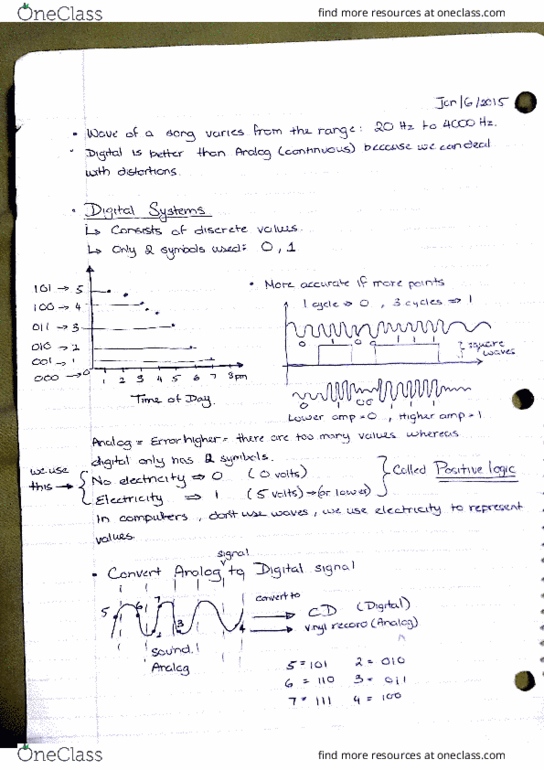 OneClass
find more resources at oneclass.com
Jan/6/2015
• Wave of a song varies from the range: 20 Hz to 4000 Hz.
• Digital is better than Analog (continuous) because we can deal
with distortions.
• Digital Systems
↳ Consists of discrete values.
↳ Only 2 symbols used: 0, 1
101 → 5
100 → 4
011 → 3
010 → 2
001 → 1
000 → 0
1 2 3 4 5 6 7 8pm
Time of Day
• More accurate if more points
1 cycle ⇒ 0 , 3 cycles ⇒ 1
0 1 0 0 1 1 1
square
waves
0 1 00 1 1 1
Lower amp = 0 , Higher amp = 1
Analog = Error higher = there are too many values whereas
digital only has 2 symbols.
we use
this →
No electricity ⇒ 0 (0 volts)
Electricity ⇒ 1 (5 volts) → (or lower)
Called Positive logic
In computers , don't use waves, we use electricity to represent
values.
signal
• Convert Analog to Digital signal
5 6 7 3 4
sound.
Analog
convert to
CD (Digital)
vinyl record (Analog)
5 = 101 2 = 010
6 = 110 3 = 011
7 = 111 4 = 100
OneClass
find more resources at oneclass.com